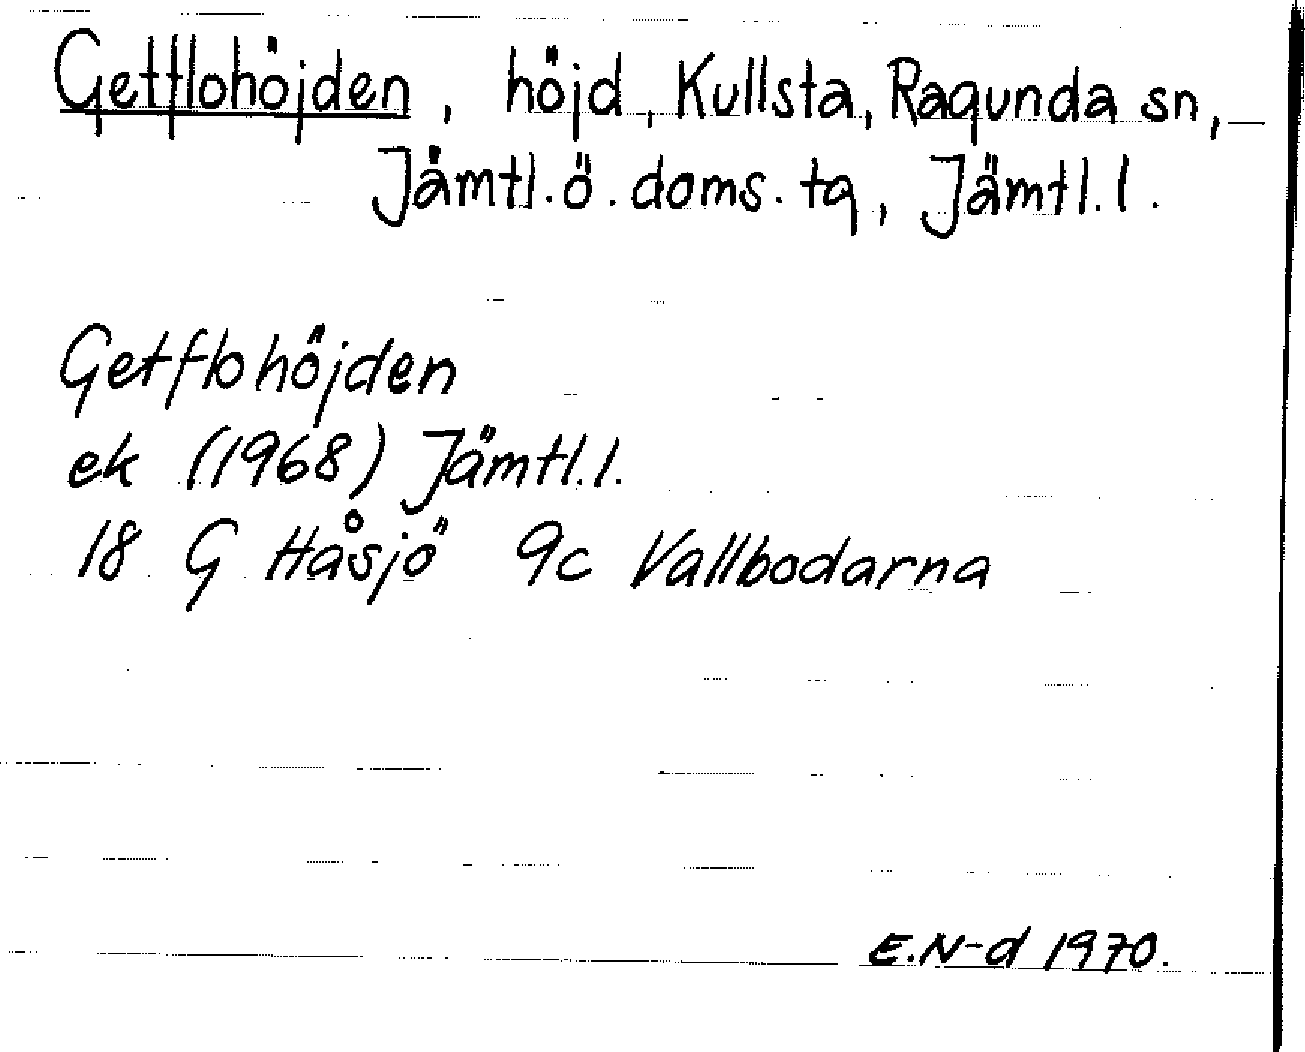 Getflohöjden, höjd, Kullsta, Ragunda sn,
Jämtl. ö. doms. tg, Jämtl. l.
Getflohöjden
ek (1968) Jämtl. l.
18 G Håsjö 9c Vallbodarna
E.N-d 1970.